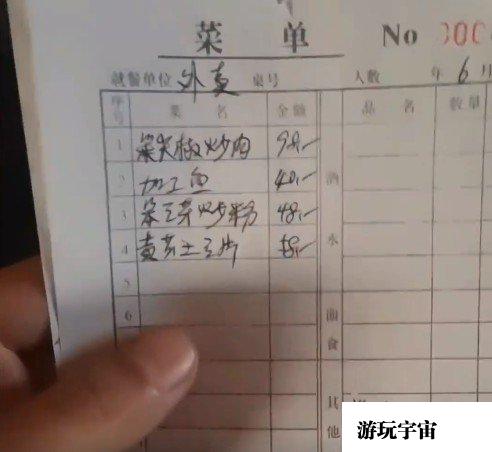 菜 单 No
就餐单位 外卖 桌号 人数 年 6 月
序号 菜 名 金额 品 名 数量
1 尖椒炒肉 98.-
2 加工鱼 40.-
3 炒粉 48.-
4 黄芽土豆片
5
6
酒水
面食
其他
游玩宇宙